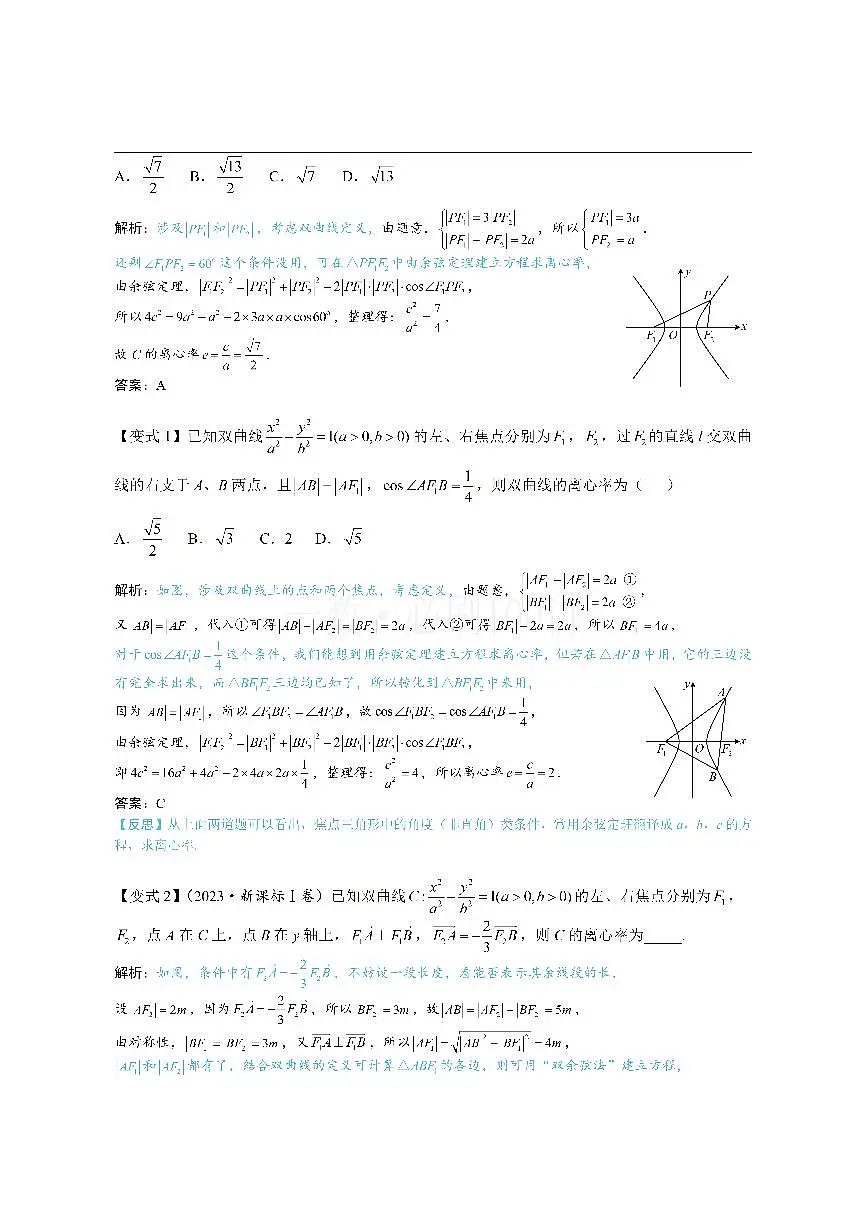 A. √7/2 B. √13/2 C. √7 D. √13
解析：涉及|PF₁|和|PF₂|，考虑双曲线定义，由题意，{|PF₁|=3|PF₂| |PF₁|-|PF₂|=2a，所以{|PF₁|=3a |PF₂|=a，
还剩∠F₁PF₂=60°这个条件没用，可在△PF₁F₂中由余弦定理建立方程求离心率，
由余弦定理，|F₁F₂|²=|PF₁|²+|PF₂|²-2|PF₁|·|PF₂|·cos∠F₁PF₂，
所以4c²=9a²+a²-2×3a×a×cos60°，整理得：c²/a²=7/4，
故C的离心率e=c/a=√7/2.
答案：A
y
P
F₁ O F₂ x
【变式1】已知双曲线x²/a²-y²/b²=1(a>0,b>0)的左、右焦点分别为F₁，F₂，过F₂的直线l交双曲
线的右支于A、B两点，且|AB|=|AF₁|，cos∠AF₁B=1/4，则双曲线的离心率为（ ）
A. √5/2 B. √3 C. 2 D. √5
解析：如图，涉及双曲线上的点和两个焦点，考虑定义，由题意，{|AF₁|-|AF₂|=2a ① |BF₁|-|BF₂|=2a ②，
又|AB|=|AF₁|，代入①可得|AB|-|AF₂|=|BF₂|=2a，代入②可得|BF₁|-2a=2a，所以|BF₁|=4a，
对于cos∠AF₁B=1/4这个条件，我们能想到用余弦定理建立方程求离心率，但若在△AF₁B中用，它的三边没
有完全求出来，而△BF₁F₂三边均已知了，所以转化到△BF₁F₂中来用，
因为|AB|=|AF₁|，所以∠F₁BF₂=∠AF₁B，故cos∠F₁BF₂=cos∠AF₁B=1/4，
由余弦定理，|F₁F₂|²=|BF₁|²+|BF₂|²-2|BF₁|·|BF₂|·cos∠F₁BF₂，
即4c²=16a²+4a²-2×4a×2a×1/4，整理得：c²/a²=4，所以离心率e=c/a=2.
答案：C
y
A
F₁ O F₂ x
B
【反思】从上面两道题可以看出，焦点三角形中的角度（非直角）类条件，常用余弦定理翻译成a，b，c的方
程，求离心率.
【变式2】（2023·新课标Ⅰ卷）已知双曲线C:x²/a²-y²/b²=1(a>0,b>0)的左、右焦点分别为F₁，
F₂，点A在C上，点B在y轴上，F₁A⊥F₁B，F₂A=-2/3F₂B，则C的离心率为_____.
解析：如图，条件中有F₂A=-2/3F₂B，不妨设一段长度，看能否表示其余线段的长，
设|AF₂|=2m，因为F₂A=-2/3F₂B，所以|BF₂|=3m，故|AB|=|AF₂|+|BF₂|=5m，
由对称性，|BF₁|=|BF₂|=3m，又F₁A⊥F₁B，所以|AF₁|=√(|AB|²-|BF₁|²)=4m，
|AF₁|和|AF₂|都有了，结合双曲线的定义可计算△ABF₁的各边，则可用“双余弦法”建立方程，